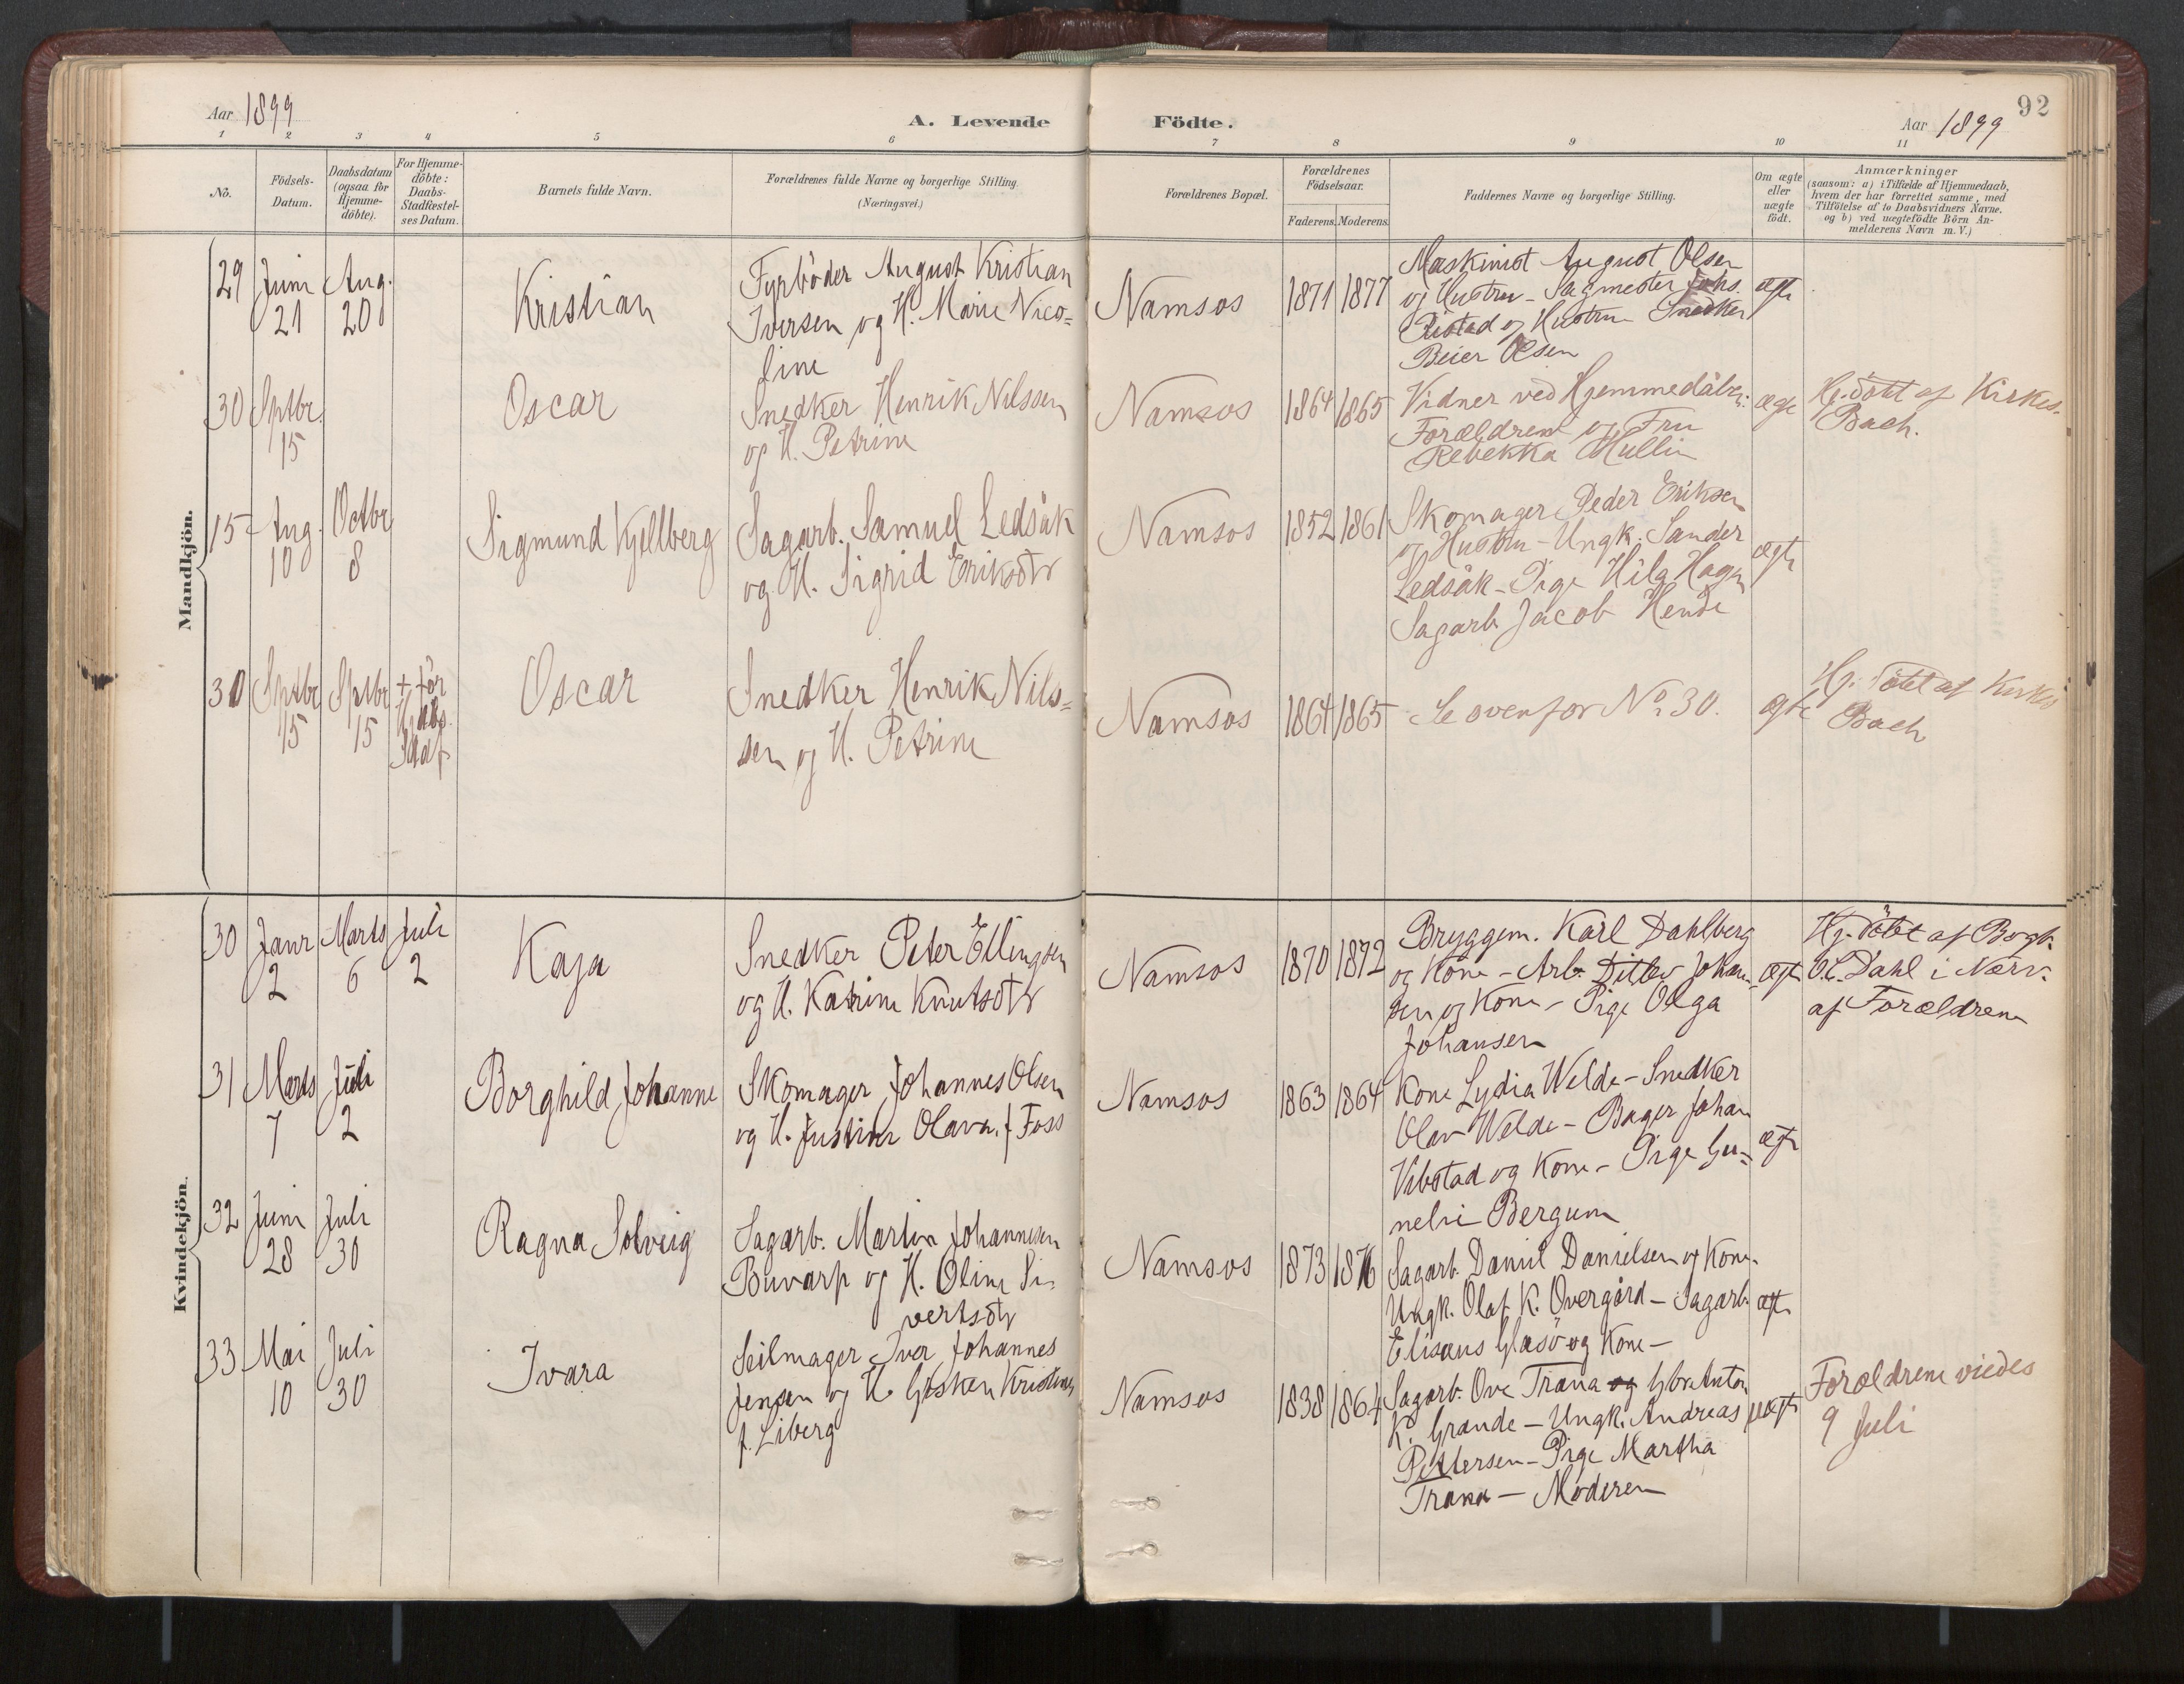 Aar 1899
A. Levende Födte.
Aar 1899
92
1 2 3 4 5 6 7 8 9 10 11
No.
Födsels-Datum.
Daabsdatum (ogsaa for Hjemme-döbte).
For Hjemme-döbte: Daabs-Stadfæstel-ses Datum.
Barnets fulde Navn.
Forældrenes fulde Navne og borgerlige Stilling.
(Næringsvei.)
Forældrenes Bopæl.
Forældrenes Födselsaar.
Faderens. Moderens.
Faddernes Navne og borgerlige Stilling.
Om ægte eller uægte födt.
Anmærkninger
(saasom: a) i Tilfælde af Hjemmedaab,
hvem der har forrettet samme, med
Tilföielse af to Daabsvidners Navne,
og b) ved uægtefödte Börn An-
melderens Navn m. V.)
Mandkjön.
29 Juni 21 Aug. 20 Kristian
Fyrböder August Kristian
Iversen og H. Marie Nico=
line
Namsos 1871 1877
Maskinist August Olsen
og Hustru - Sagmester Johs.
og Hustru Snedker
Beier Olsen
ægte
30 Sptbr. 15 Oscar
Snedker Henrik Nilssen
og H. Petrine
Namsos 1864 1865
Vidner ved Hjemmedåben:
Forældrene og Fru
Rebekka Mullin
ægte
Hj. döbt af Kirkes.
Bach.
15 Aug. 10 Octbr 8 Sigmund Kjellberg
Sagarb. Samuel Ledsåk
og H. Sigrid Eriksdtr
Namsos 1852 1861
Skomager Peder Eriksen
og Hustru - Ungk. Sander
Ledsåk - Pige Hilg Hagen
Sagarb. Jacob
ægte
30 Sptbr 15 Sptbr 15 + för
Oscar
Snedker Henrik Nils=
sen og H. Petrine
Namsos 1864 1865
Se ovenfor No. 30.
ægte
Hj. döbt af Kirkes
Bach
Kvindekjön.
30 Janr 2 Marts 6 Juli 2 Kaja
Snedker Peter Ellingsen
og H. Katrine Knutsdtr
Namsos 1870 1872
Bryggem. Karl Dahlberg
og Kone - Arb. Ditlev Johan-
sen og Kone - Pige Olga
Johansen
ægte
Hj. döbt af Bogh.
O. C. Dahl i Nærv.
af Forældrene
31 Marts 7 Juli 2 Borghild Johanne
Skomager Johannes Olsen
og H. Justine Olava f. Foss
Namsos 1863 1864
Kone Lydia Welde - Snedker
Olav Welde - Bager Johan
Vibstad og Kone - Pige Gu=
nelie Bergum
ægte
32 Juni 28 Juli 30 Ragna Solveig
Sagarb. Martin Johannesen
Buvarp og H. Oline Si-
vertsdtr
Namsos 1873 1876
Sagarb. Daniel Danielsen og Kone -
Ungk. Olaf K. Overgård - Sagarb.
Elisæus Glasö og Kone -
ægte
33 Mai 10 Juli 30 Ivara
Seilmager Iver Johannes
Jensen og H. Gjsken Kristine
f. Liberg
Namsos 1838 1864
Sagarb. Ove Trana og Gbr. Anton
K. Grande - Ungk. Andreas
Pettersen - Pige Martha
Trana - Moderen
uægte
Forældrene viedes
9 Juli